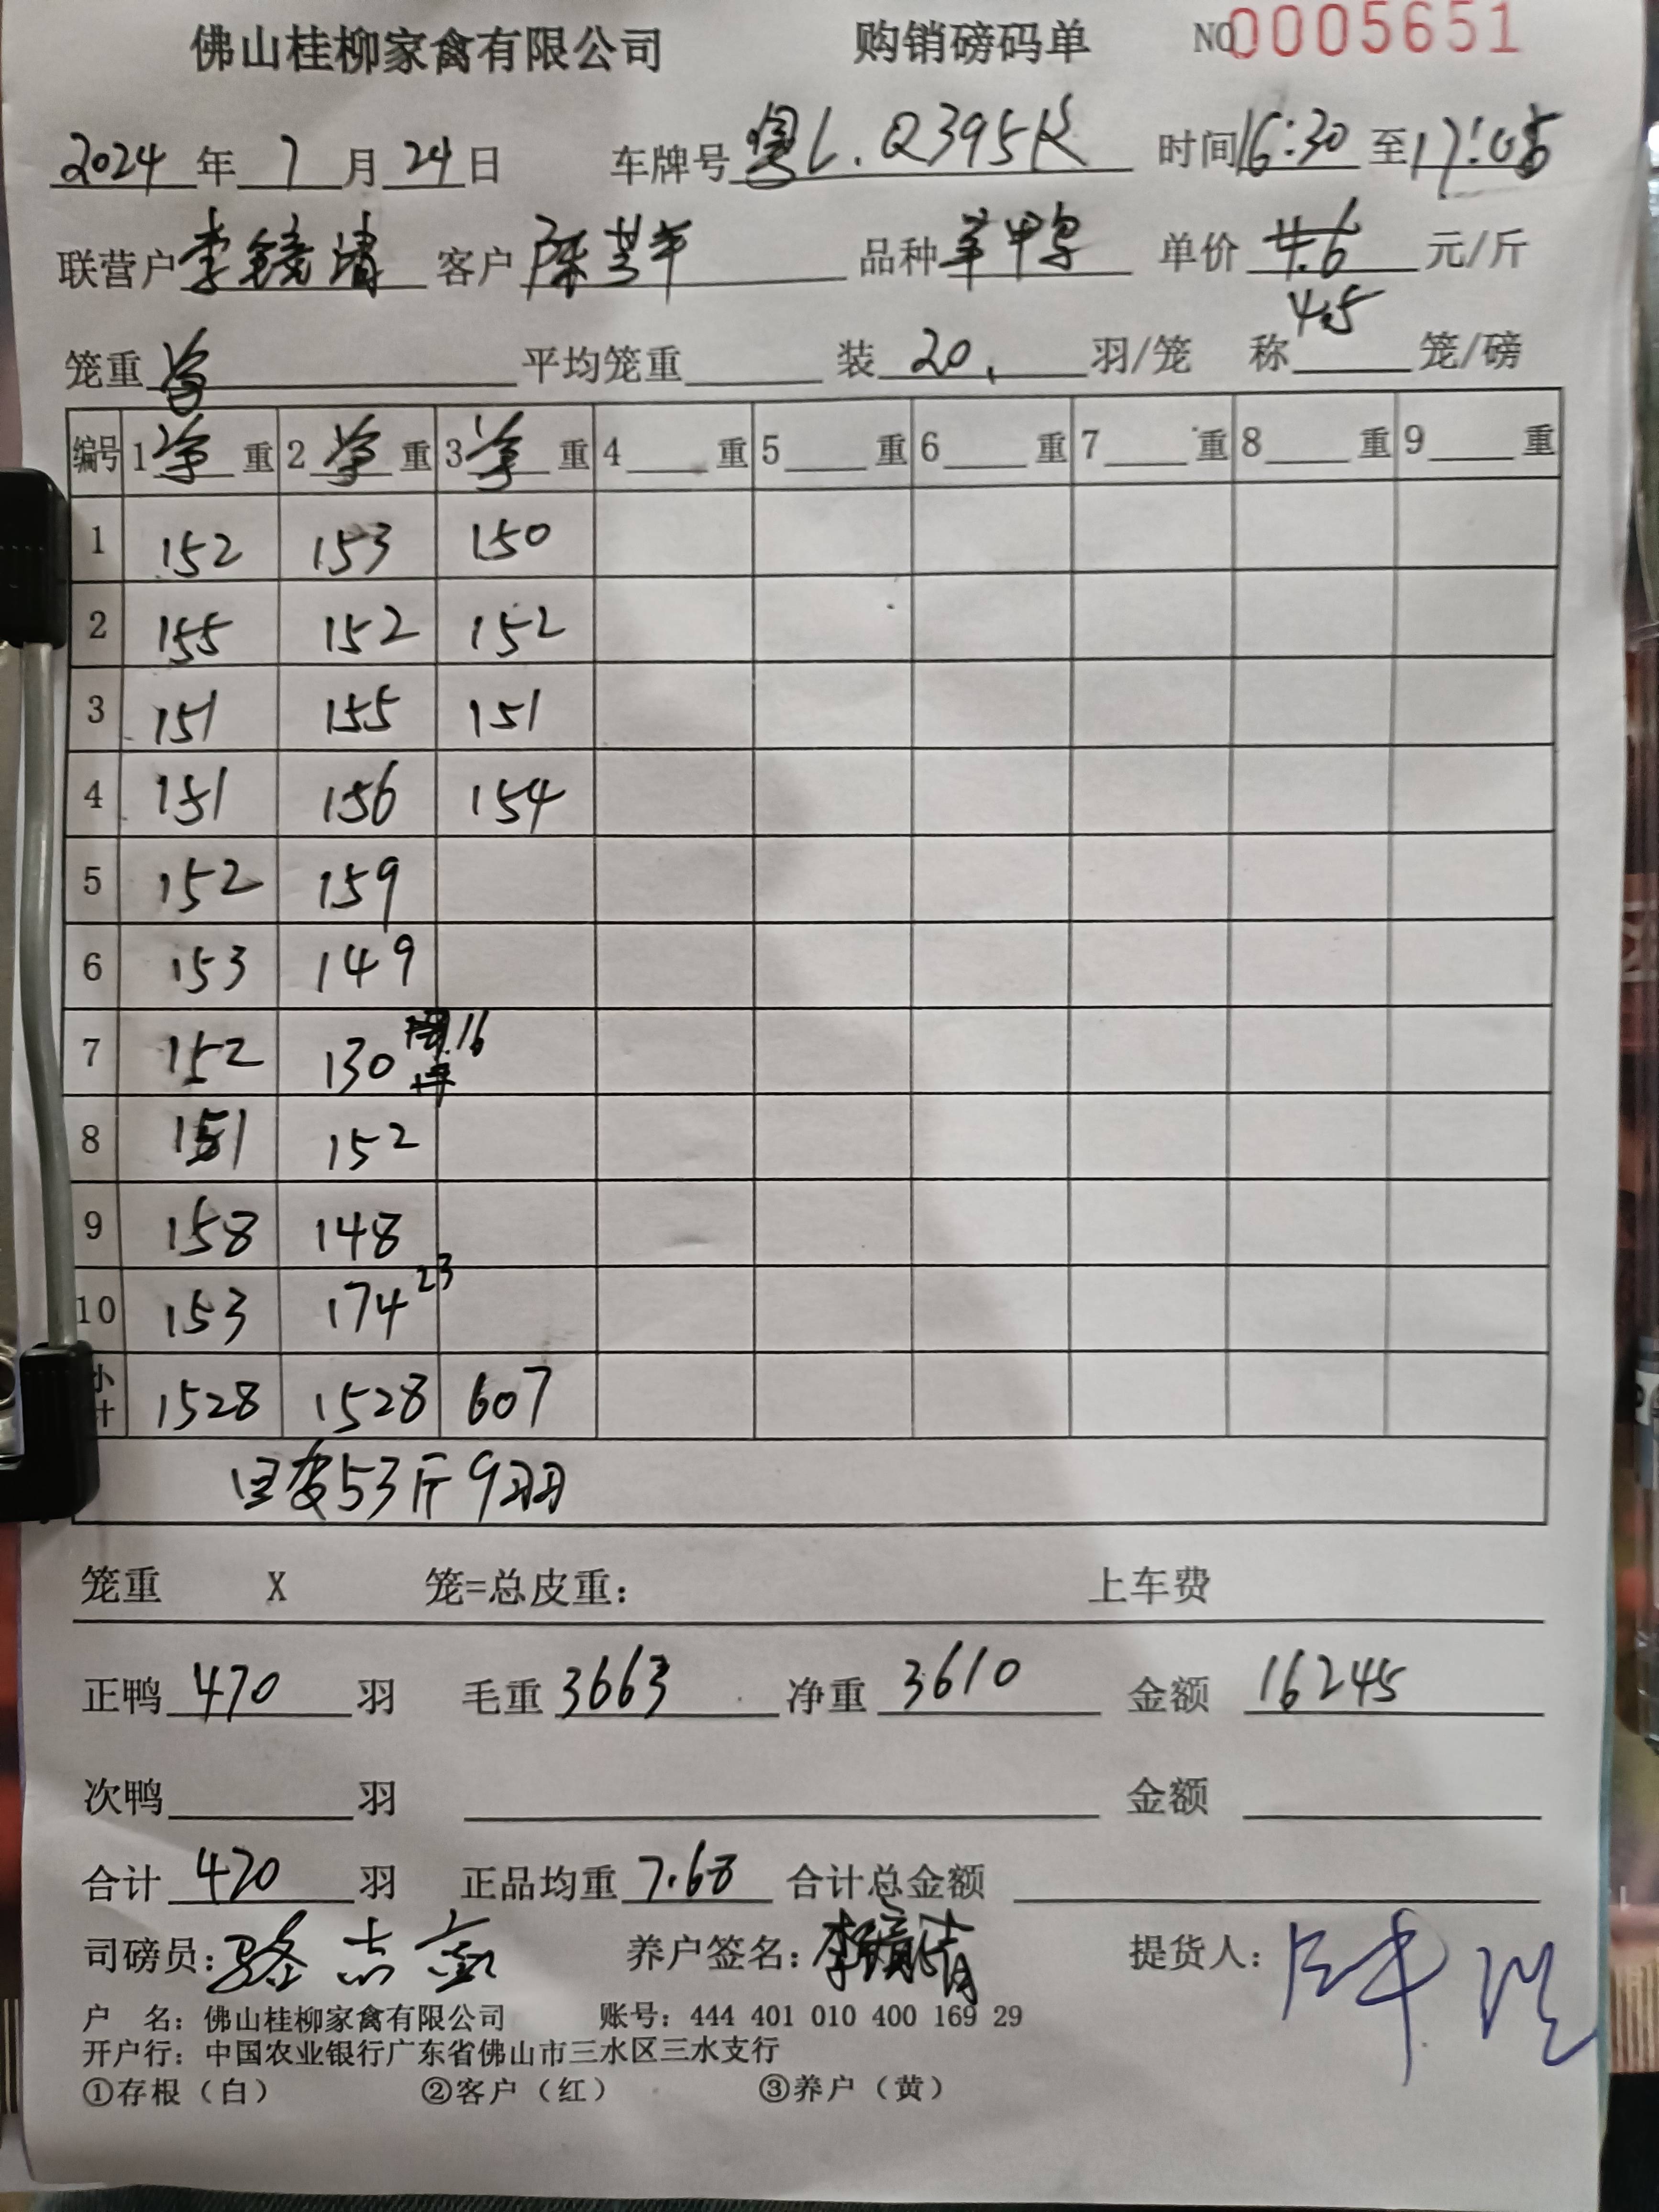 佛山桂柳家禽有限公司 购销磅码单 NO 0005651
2024 年 7 月 24 日 车牌号 粤L.Q395K 时间 16:30 至 17:05
联营户 李镜清 客户 陈 品种 单价 4.6 元/斤
4.5
笼重 平均笼重 装 20 羽/笼 称 笼/磅
编号 1 净 重 2 净 重 3 净 重 4 重 5 重 6 重 7 重 8 重 9 重
1 152 153 150
2 155 152 152
3 151 155 151
4 151 156 154
5 152 159
6 153 149
7 152 130 16
8 151 152
9 158 148
10 153 174 23
小计 1528 1528 607
回皮53斤9羽
笼重 X 笼=总皮重： 上车费
正鸭 470 羽 毛重 3663 净重 3610 金额 16245
次鸭 羽 金额
合计 470 羽 正品均重 7.68 合计总金额
司磅员：骆志 养户签名：李镜清 提货人：
户 名：佛山桂柳家禽有限公司 账号：444 401 010 400 169 29
开户行：中国农业银行广东省佛山市三水区三水支行
①存根（白） ②客户（红） ③养户（黄）